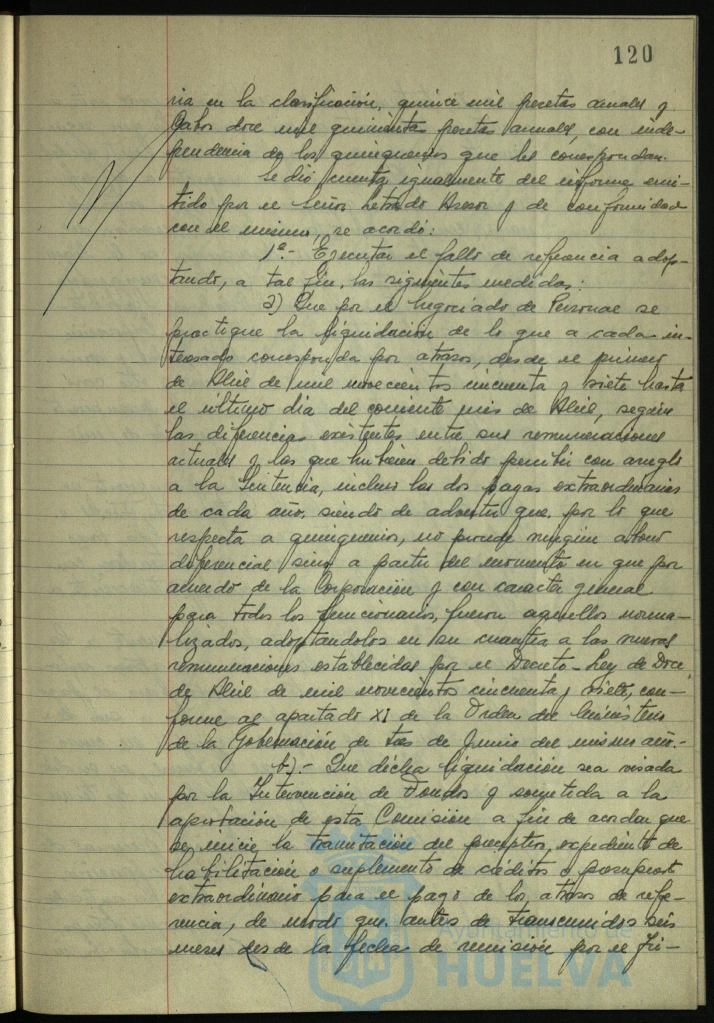 120
ria en la clasificación, quince mil pesetas anuales y
Cabos doce mil quinientas pesetas anuales, con inde-
pendencia de los quinquenios que les correspondan.
Se dió cuenta igualmente del informe emi-
tido por el Señor Letrado Asesor y de conformidad
con el mismo, se acordó:
1º.- Ejecutar el fallo de referencia adop-
tando, a tal fin, las siguientes medidas:
a) Que por el Negociado de Personal se
practique la liquidación de lo que a cada in-
teresado corresponda por atrasos, desde el primero
de Abril de mil novecientos cincuenta y siete hasta
el último día del corriente mes de Abril, según
las diferencias existentes entre sus remuneraciones
actuales y las que hubieren debido percibir con arreglo
a la Sentencia, incluso las dos pagas extraordinarias
de cada año, siendo de advertir que, por lo que
respecta a quinquenios, no procede ningún abono
diferencial sino a partir del momento en que por
acuerdo de la Corporación y con caracter general
para todos los funcionarios, fueron aquellos norma-
lizados, adoptandolos en su cuantía a las nuevas
remuneraciones establecidas por el Decreto-Ley de Doce
de Abril de mil novecientos cincuenta y siete, con-
forme al apartado XI de la Orden del Ministerio
de la Gobernación de tres de Junio del mismo año.-
b).- Que dicha liquidación sea visada
por la Intervención de Fondos y sometida a la
aprobación de esta Comisión a fin de acordar que
se inicie la tramitación del preceptivo, expediente de
habilitación o suplemento de créditos o presupuesto
extraordinario para el pago de los atrasos de refe-
rencia, de modo que antes de transcurridos seis
meses desde la fecha de remisión por el Tri-
Ayuntamiento de
HUELVA